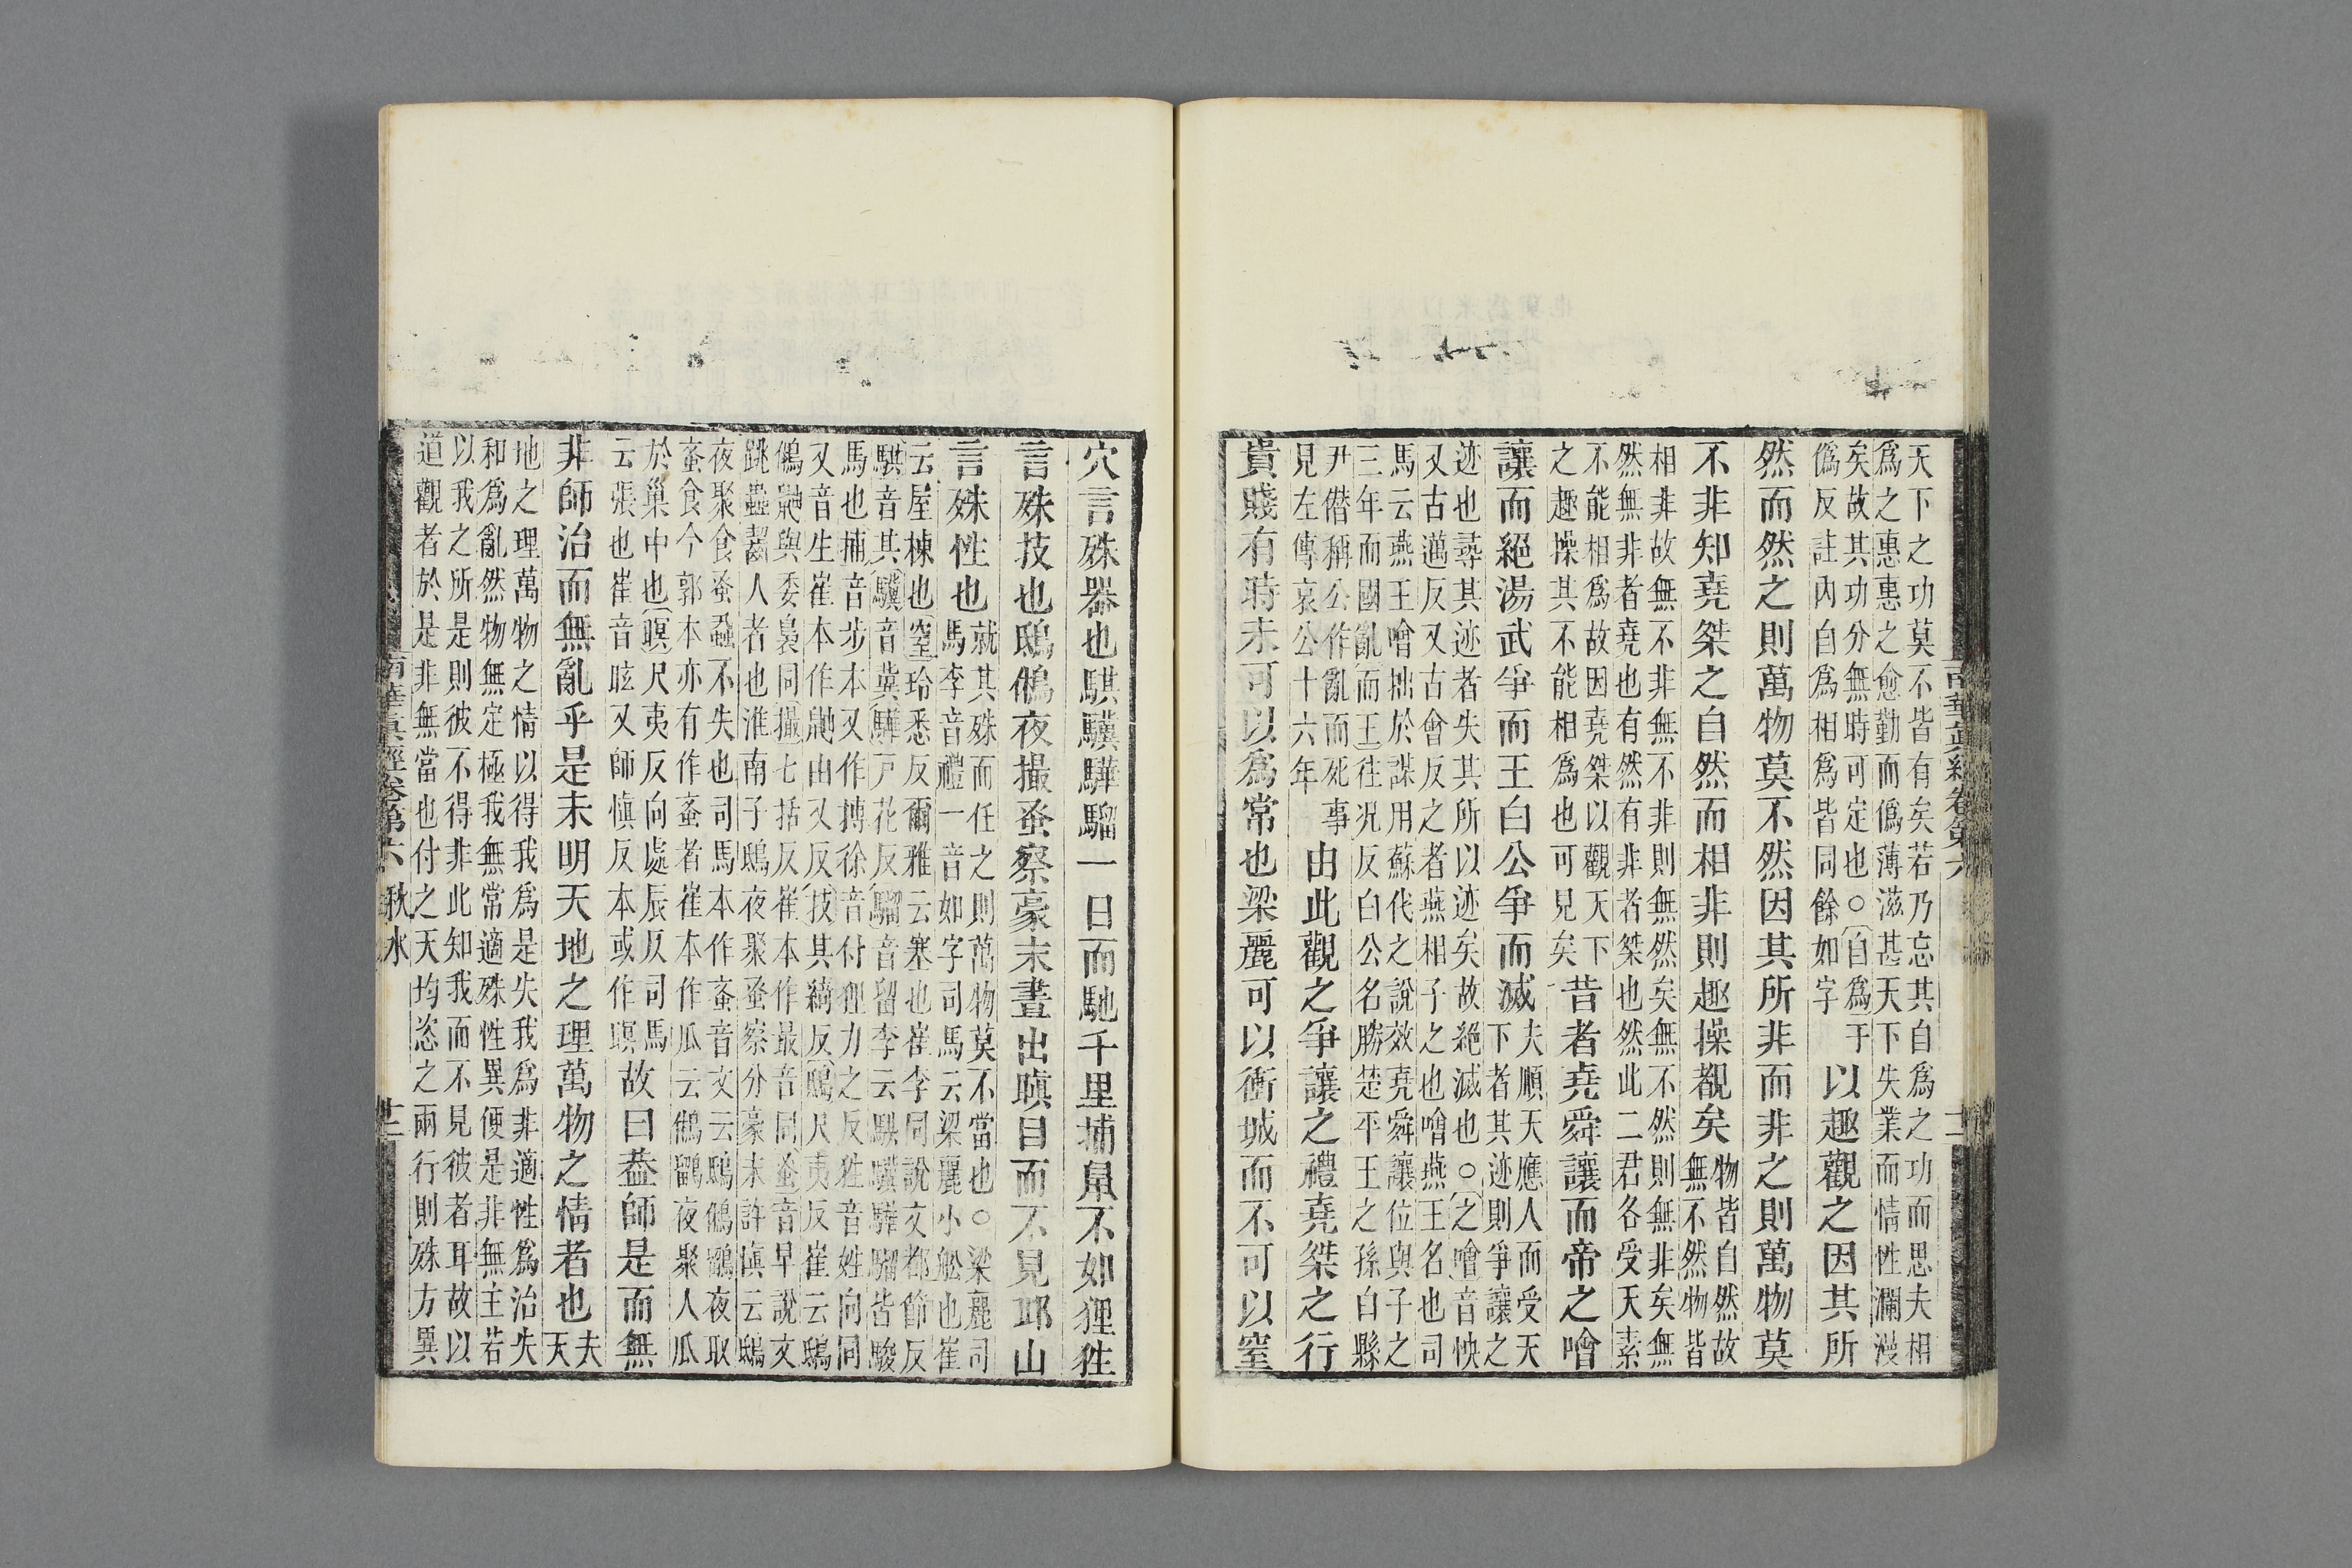 天下之功莫不皆有矣若乃忘其自爲之功而思夫相
爲之惠惠之愈勤而僞薄滋甚天下失業而情性瀾漫
矣故其功分無時可定也○自爲于
僞反註內自爲相爲皆同餘如字
以趣觀之因其所
然而然之則萬物莫不然因其所非而非之則萬物莫
不非知堯桀之自然而相非則趣操覩矣
物皆自然故
無不然物皆
相非故無不非無不非則無然矣無不然則無非矣無
然無非者堯也有然有非者桀也然此二君各受天素
不能相爲故因堯桀以觀天下
之趣操其不能相爲也可見矣
昔者堯舜讓而帝之噲
讓而絕湯武爭而王白公爭而滅
夫順天應人而受天
下者其迹則爭讓之
迹也尋其迹者失其所以迹矣故絕滅也○之噲音快
又古邁反又古會反之者燕相子之也噲燕王名也司
馬云燕王噲拙於謀用蘇代之說效堯舜讓位與子之
三年而國亂而王往况反白公名勝楚平王之孫白縣
尹僭稱公作亂而死事
見左傳哀公十六年
由此觀之爭讓之禮堯桀之行
貴賤有時未可以爲常也梁麗可以衝城而不可以窒
穴言殊器也騏驥驊騮一日而馳千里捕鼠不如狸狌
言殊技也鴟鵂夜撮蚤察豪末晝出瞋目而不見邱山
言殊性也
就其殊而任之則萬物莫不當也○梁麗司
馬李音禮一音如字司馬云梁麗小舩也崔
云屋棟也窒珍悉反爾雅云塞也崔李同說文都節反
騏音其驥音冀驊戸花反騮音留李云騏驥驊騮皆駿
馬也捕音步本又作搏徐音付狸力之反狌音姓向同
又音生崔本作鼬由又反技其綺反鴟尺夷反崔云鴟
鵂鼬與委梟同撮七括反崔本作最音同蚤音早說文
跳蟲齧人者也淮南子鴟夜聚蚤察分豪末許愼云鴟
夜聚食蚤蝨不失也司馬本作蚉音文云鴟鵂鶹夜取
蚉食今郭本亦有作蚉者崔本作爪云鵂鶹夜聚人爪
於巢中也瞋尺夷反向處辰反司馬
云張也崔音眩又師愼反本或作瞑
故曰葢師是而無
非師治而無亂乎是未明天地之理萬物之情者也
夫
天
地之理萬物之情以得我爲是失我爲非適性爲治失
和爲亂然物無定極我無常適殊性異便是非無主若
以我之所是則彼不得非此知我而不見彼者耳故以
道觀者於是非無當也付之天均恣之兩行則殊方異
南華眞經卷第六
秋水
十二